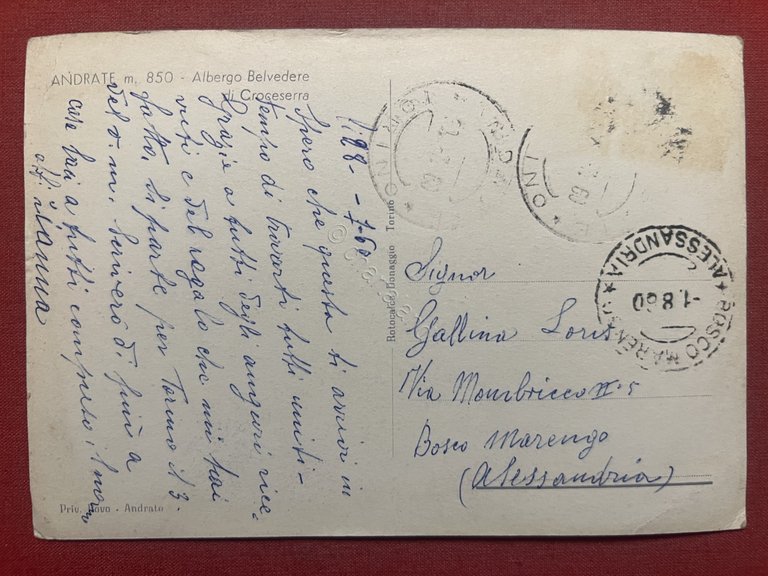 ANDRATE m. 850 - Albergo Belvedere
di Croceserra
28-7-60
Spero che questa ti arrivi in
tempo di trovarti tutti uniti -
Grazie a tutti degli auguri rice
vuti e del regalo che mi hai
fatto. Si parte per Torino il 3.
del v. m. Scriverò di più a
casa baci a tutti compreso i
aff. Nanna
Priv. Bovo - Andrate
Rotocalco Bonaggio Torino
Signor
Gallina Loris
Via Mombricco N° 5
Bosco Marengo
(Alessandria)
BOSCO MARENGO
* ALESSANDRIA *
-1.8.60
TORINO